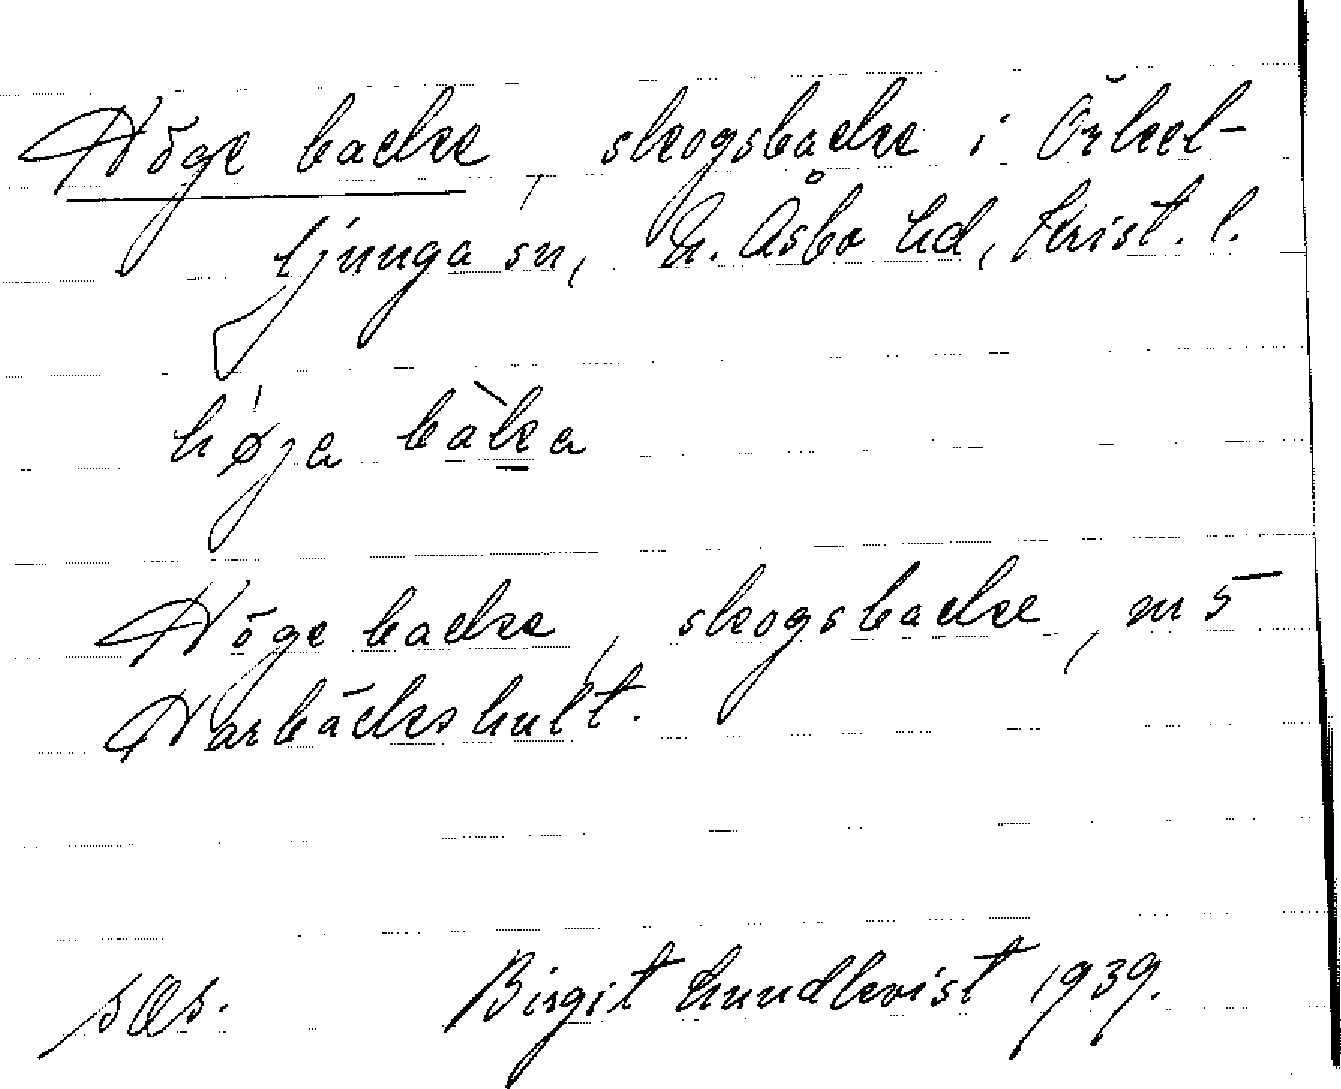 Höge backe, skogsbacke i Örkel-
ljunga sn, N. Åsbo hd, Krist. l.
høja bàka
Höge backe, skogsbacke, nr 5
Harbäckshult.
sOs. Birgit Lundkvist 1939.